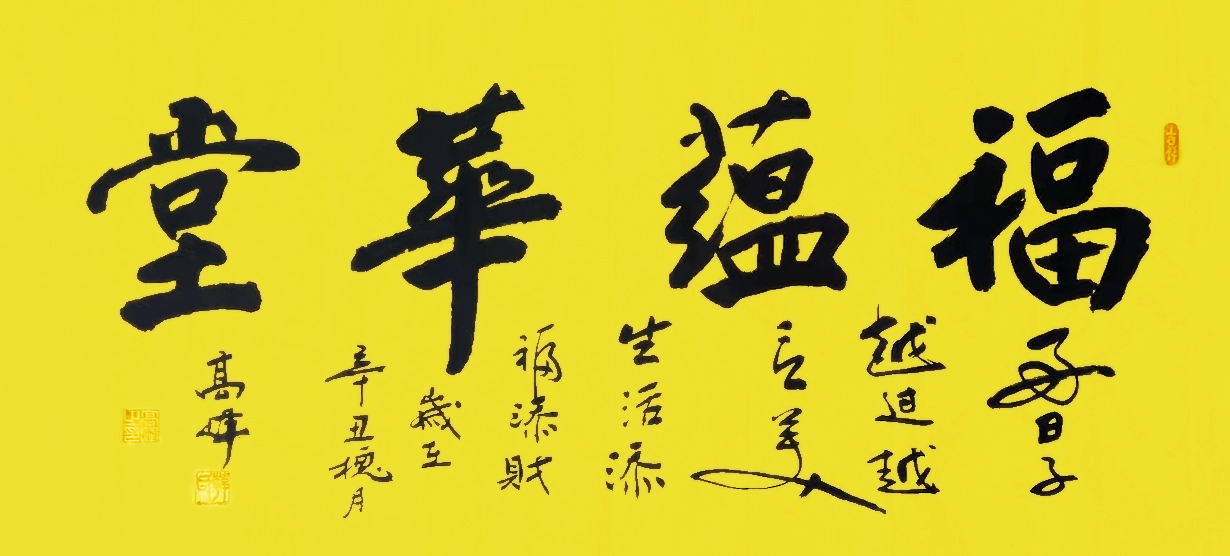 福蕴華堂
好日子
越过越
美
生活添
福添財
歲在
辛丑槐月
高